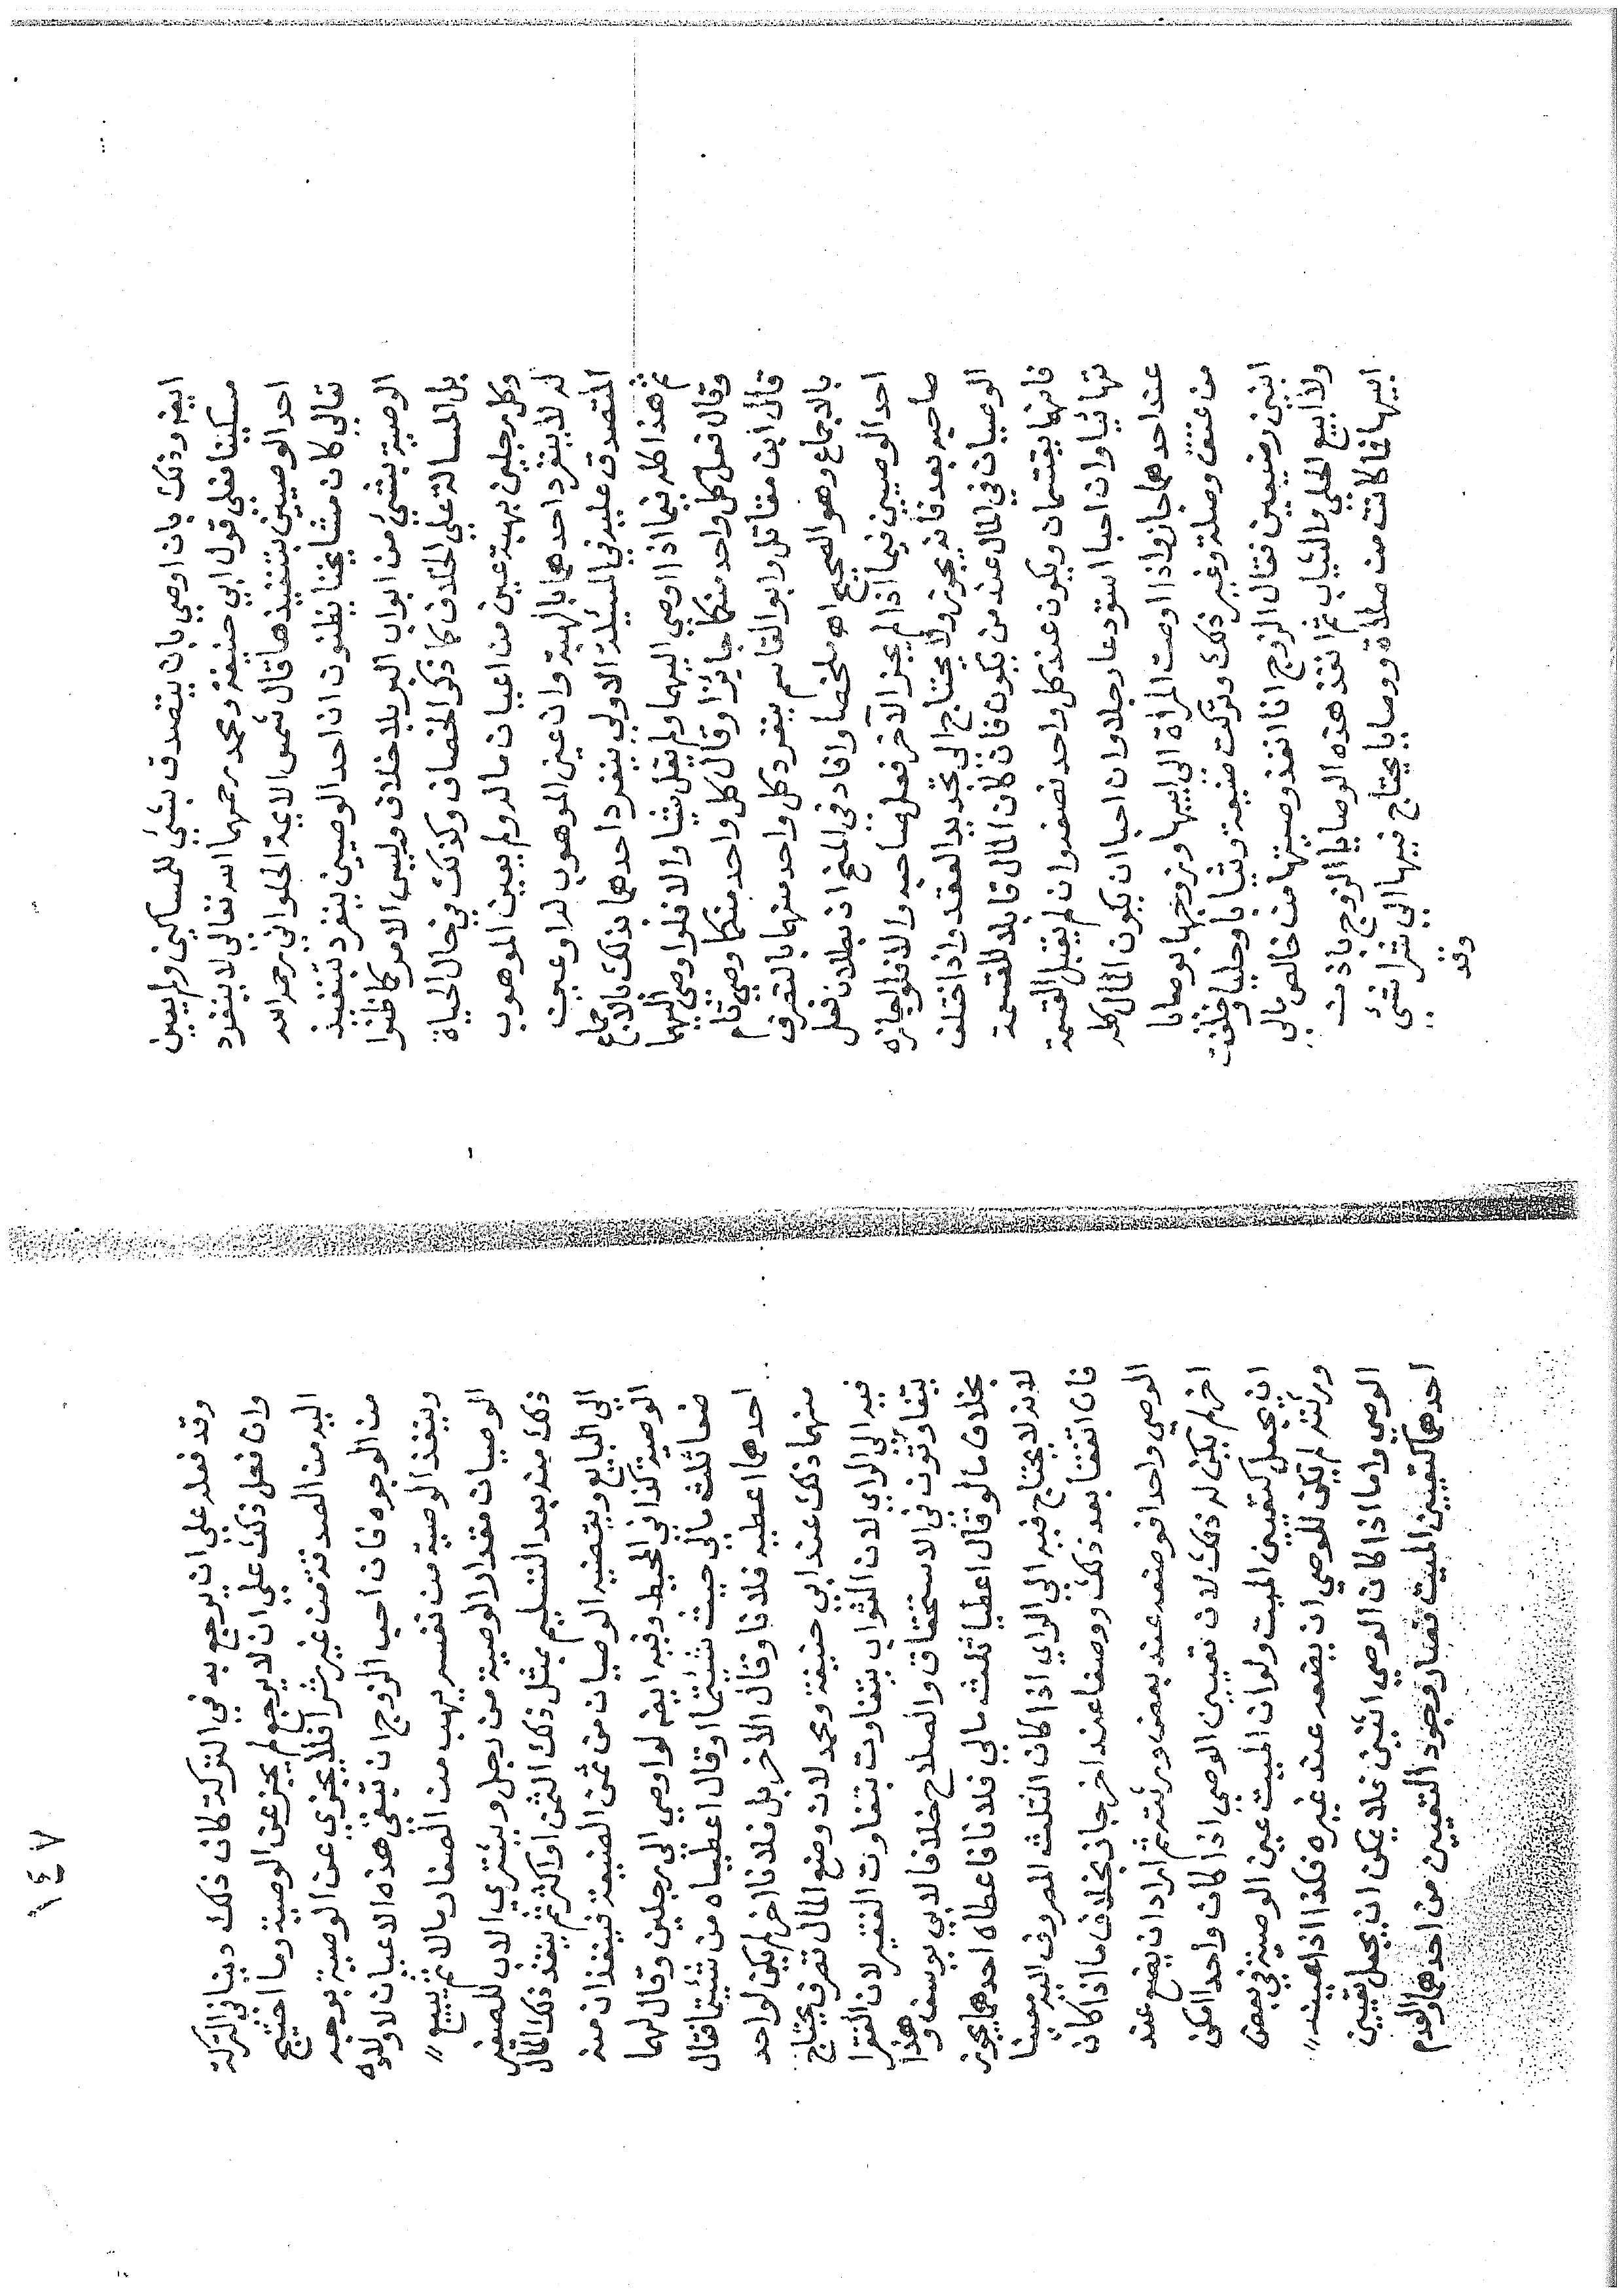 ايضه وذلك بان اوصي بان يتصدق بشيء للمساكين ولم يعين
مسكينا فعلي قول ابي حنيفة ومحمد رحمهما الله تعالي لا ينفرد
احد الوصيين بتنفيذها قال شمس الايمة الحلواني رحمه الله
تعالي كان مشايخنا يظنون ان احد الوصيين ينفرد بتنفيذ
الوصية بشيء من ابواب البر بلا خلاف وليس الامر كما ظنوا
بل المسالة علي الخلاف كما ذكر الخصاف وكذلك في حال الحياة
وكل رجلين بهبة عين من اعيان ماله ولم يعين الموهوب
له لا ينفرد احدهما بالهبة وان عين الموهوب له او عين
المتصدق عليه في المسئلة الاولي ينفرد احدهما بذلك بالاجماع
ثم هذا كله فيما اذا اوصي اليهما ولم يقل شيا والا فلو اوصي اليهما
وقال فعل كل واحد منكما جائزا وقال كل واحد منكما وصي تام
قال ابن مقاتل وابو القاسم ينفرد كل واحد منهما بالتصرف
بالاجماع وهو الصحيح اه ملخصا وافاد في المنح ان بطلان فعل
احد الوصيين فيما اذا لم يجز الاخر فعل صاحبه والا فلو اجازه
صاحبه بعد فانه يجوز ولا يحتاج الي تجديد العقد واذا اختلف
الوصيان في المال عند من يكون فان كان المال قابلا للقسمة
فانهما يقتسمان ويكون عند كل واحد نصفه وان لم يقبل القسمة
تهائيا وان احبا استودعا رجلا وان احبا ان يكون المال كله
عند احدهما جاز واذا اوصت المراة الي ابيها وزوجها بوصايا
من عتق وصلة وغير ذلك وتركت ضيعة وثيابا وحليا وخلفت
ابنين رضيعين فقال الزوج انا انفذ وصيتها من خالص مالي
ولا ابيع الحلي والثياب ثم انفذ هذه الوصايا الزوج باذن
ابيها فما كانت من صلاة ووصايا يحتاج فيها الي شراء شيء
وقد
١٤٧
وقد فعله علي ان يرجع به في التركة كان ذلك دينا في التركة
وان فعل ذلك علي ان لا يرجع لم يجز عن الوصية وما احتيج
اليه من الصدقة من غير شرا فلا يجزي عن الوصية بوجه
من الوجوه فان احب الزوج ان تبقي هذه الاعيان لاولاده
وينفذ الوصية من نفسه يهب من الصغار مالا ثم يبيع
الوصيات مقدار الوصية من رجل ويشتري الاب للصغير
ذلك منه بعد التسليم بمثل ذلك الثمن او اكثر ثم ينفذ ذلك المال
الي البايع ويقضيه الوصيان من ثمن الضيعة فينفذان منه
الوصية كذا في المحيط وفيه ايضه لو اوصي الي رجلين وقال لهما
ضعا ثلث مالي حيث شئتما او قال اعطياه من شئتما فقال
احدهما اعطيه فلانا وقال الاخر بل فلانا اخر لم يكن لواحد
منهما ذلك عند ابي حنيفة ومحمد لان وضع المال تصرف يحتاج
فيه الي الراي لان الثواب يتفاوت بتفاوت الفقير لان الفقرا
يتفاوتون في الاستحقاق والصلاح خلافا لابي يوسف وهذا
بخلاف ما لو قال اعطيا ثلث مالي فلانا فاعطاه احدهما يجوز
لانه لا يحتاج فيه الي الراي اذا كان الثلث المصروف اليه معينا
فان اتفقا بعد ذلك ووضعا عند اخر جاز بخلاف ما اذا كان
الوصي واحدا فوضعه عند بعض ورثته ثم اراد ان يضع عند
اخر لم يكن له ذلك لان تعيين الوصي اذا كان واحدا امكن
ان يجعل كتعيين الميت ولو ان الميت عين الوصية في بعض
ورثته لم يكن للوصي ان يضعه عند غيره فكذا اذا عينه
الوصي واما اذا كان الوصي اثنين فلا يمكن ان يجعل تعيين
احدهما كتعيين الميت فصار وجود التعيين من احدهما والعدم